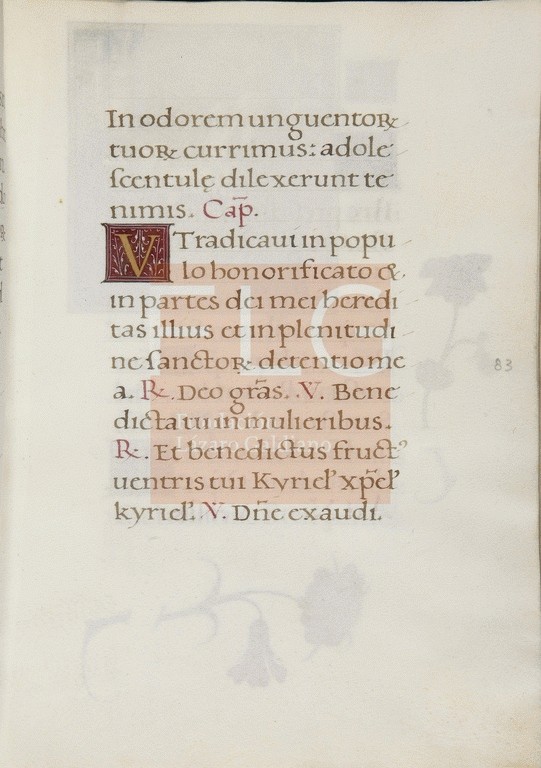 In odorem unguentoꝝ
tuoꝝ currimus: adole
ſcentulę dilexerunt te
nimis. Cap̄.
VTradicaui in popu
lo honorificato &
in partes dei mei heredi
tas illius et in plenitudi
ne ſanctoꝝ detentio me
a. ℞. Deo gr̄as. V. Bene
dicta tu in mulieribus.
℞. Et benedictus fructꝰ
uentris tui Kyriel' xp̄el'
kyriel'. V. Dn̄e exaudi.
83
FLG
Lázaro Galdiano